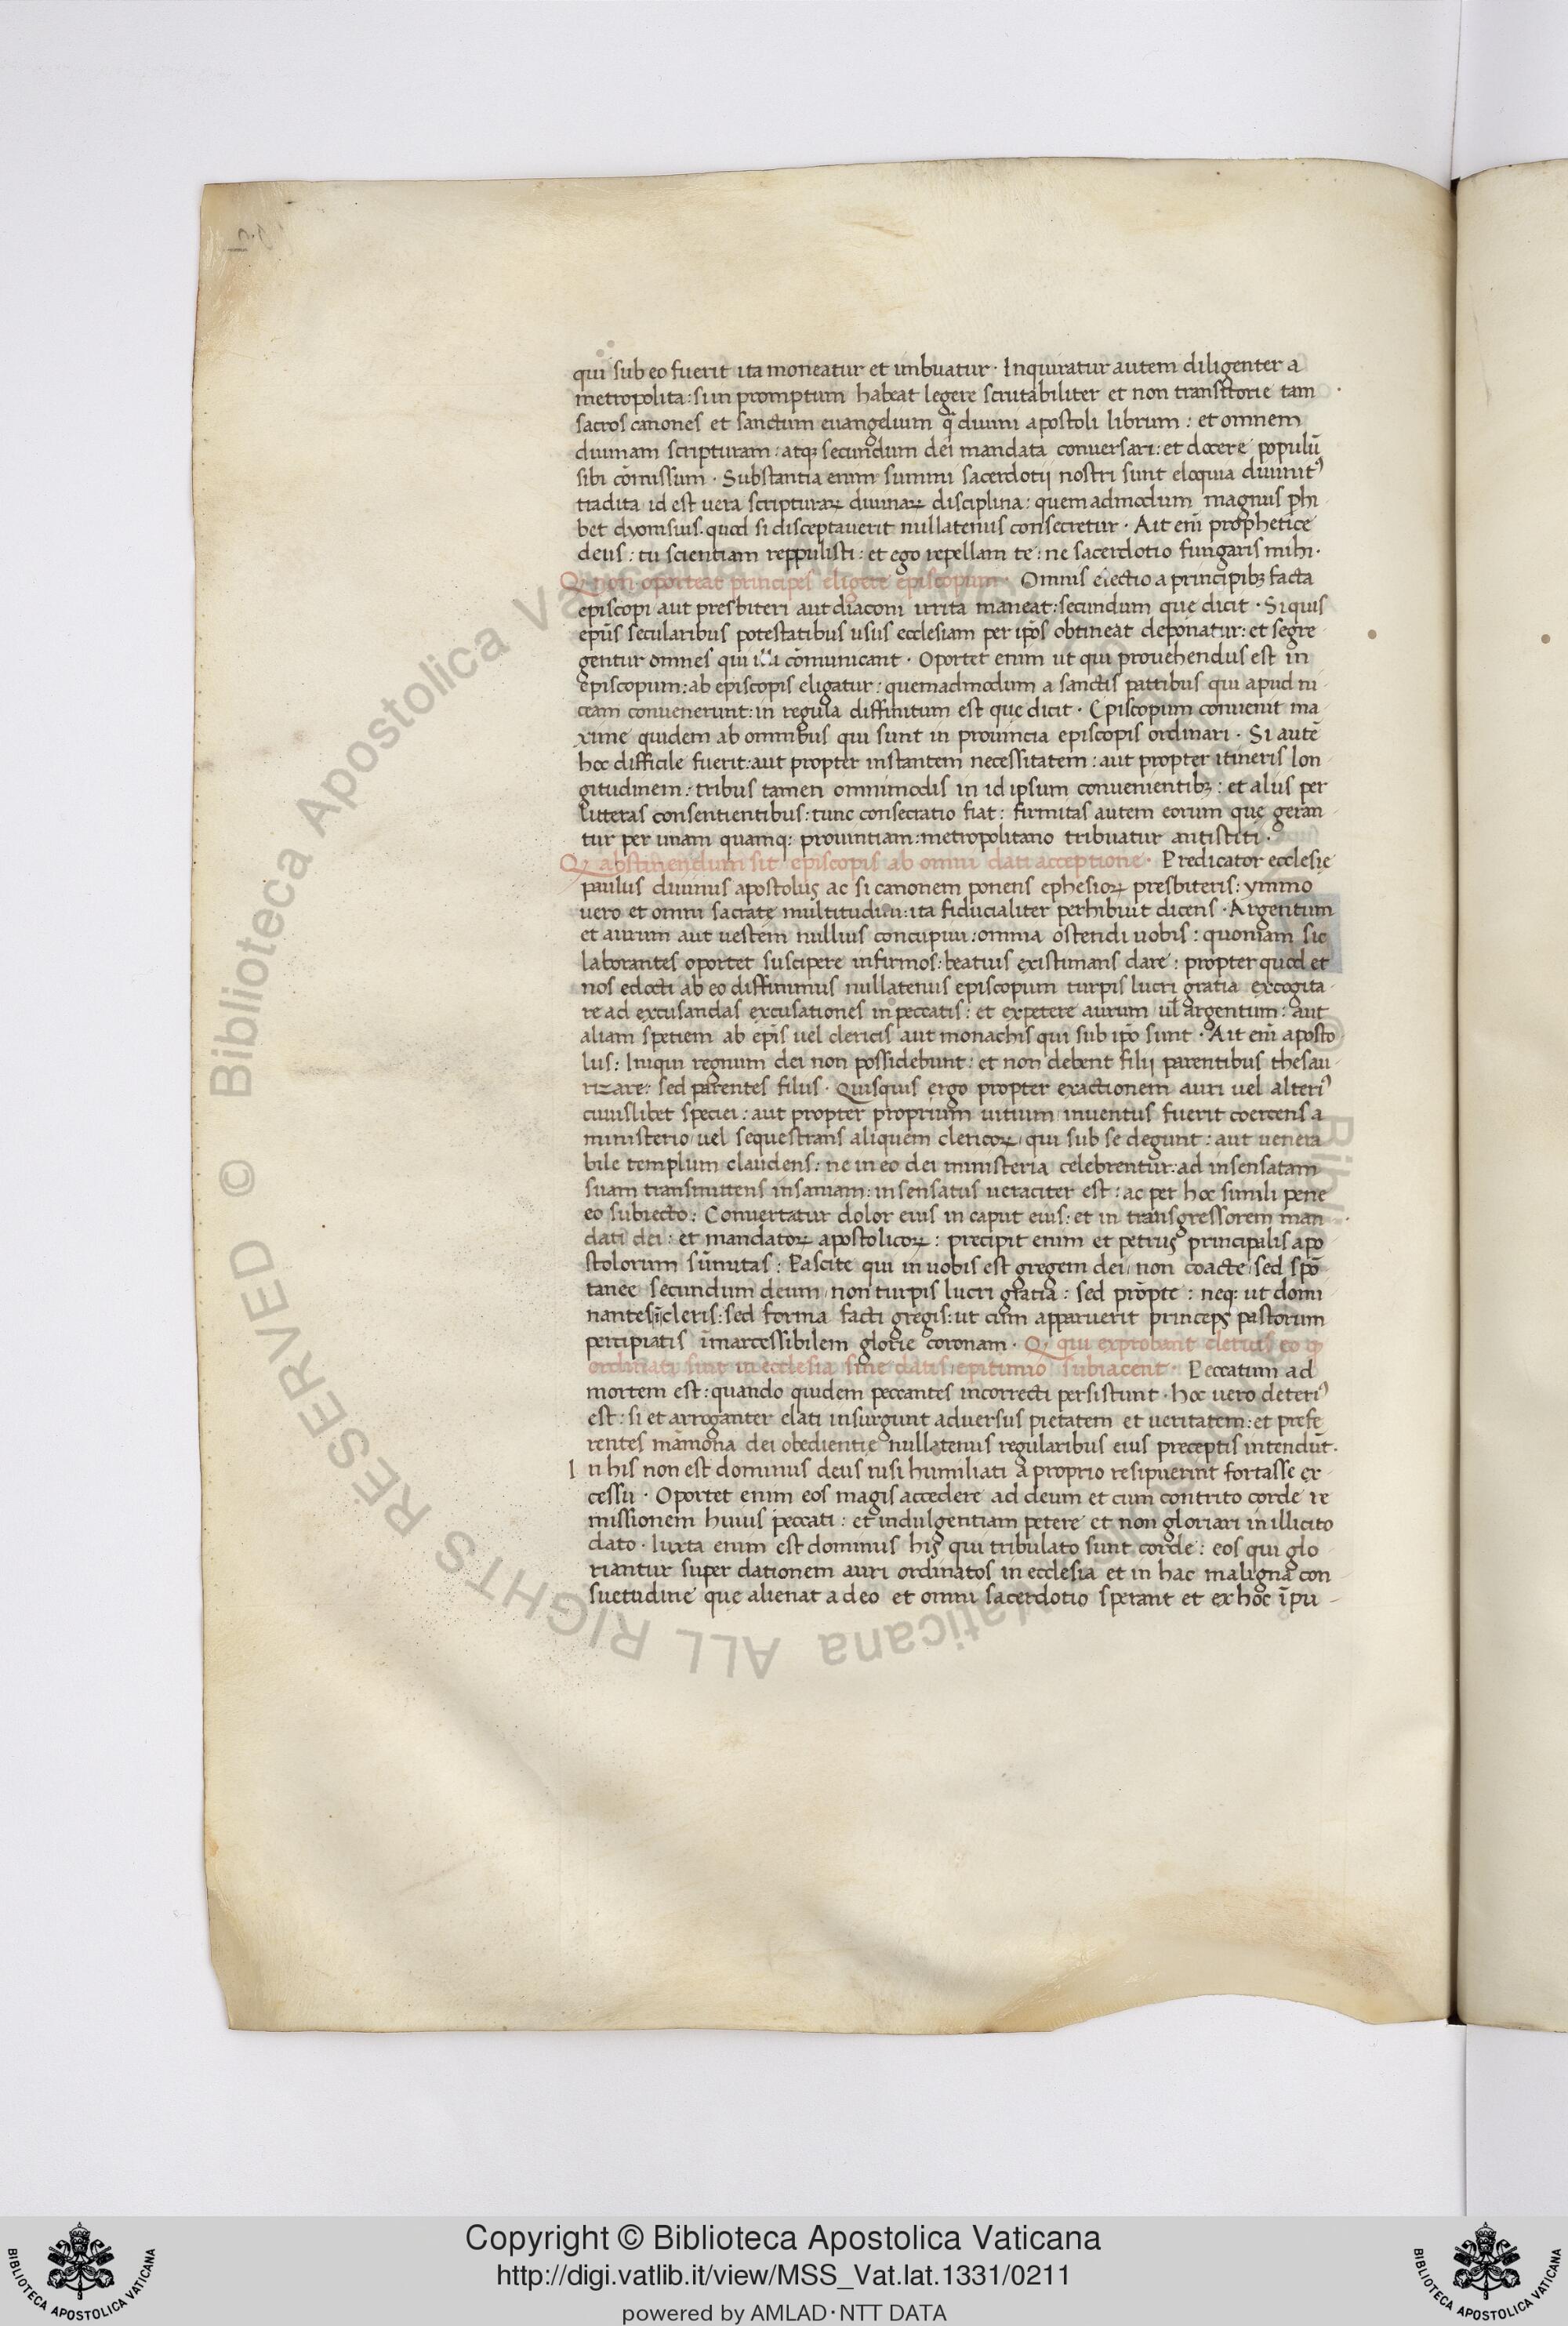 qui sub eo fuerit ita moneatur et imbuatur · Inquiratur autem diligenter a
metropolita : si in promptum habeat legere scrutabiliter et non transitorie tam ·
sacros canones et sanctum euangelium q̄ diuini apostoli librum : et omnem
diuinam scripturam : atq; secundum dei mandata conuersari : et docere populū
sibi cōmissum · Substantia enim summi sacerdotij nostri sunt eloquia diuinitꝰ
tradita id est uera scripturaꝝ diuinaꝝ disciplina : quemadmodum magnus phi
bet dyonisius · quod si disceptauerit nullatenus consecretur · Ait eni᷈ prophetice
deus : tu scientiam reppulisti : et ego repellam te : ne sacerdotio fungaris mihi ·
Q; non oporteat principes eligere episcopum · Omnis electio a principib; facta
episcopi aut presbiteri aut diaconi irrita maneat : secundum que dicit · Si quis
ep̄us secularibus potestatibus usus ecclesiam per ip̄os obtineat deponatur : et segre
gentur omnes qui illi cōmunicant · Oportet enim ut qui prouehendus est in
episcopum : ab episcopis eligatur : quemadmodum a sanctis patribus qui apud ni
ceam conuenerunt : in regula diffinitum est que dicit · Episcopum conuenit ma
xime quidem ab omnibus qui sunt in prouincia episcopis ordinari · Si autē
hoc difficile fuerit : aut propter instantem necessitatem : aut propter itineris lon
gitudinem : tribus tamen omnimodis in id ipsum conuenientib; : et aliis per
litteras consentientibus : tunc consecratio fiat : firmitas autem eorum que geran
tur per unam quamq; prouintiam : metropolitano tribuatur antistiti ·
Q; abstinendum sit episcopis ab omni dati acceptione · Predicator ecclesię
paulus diuinus apostolus ac si canonem ponens ephesioꝝ presbiteris : ymmo
uero et omni sacrate multitudini : ita fiducialiter perhibuit dicens · Argentum
et aurum aut uestem nullius concupiui : omnia ostendi uobis : quoniam sic
laborantes oportet suscipere infirmos : beatius existimans dare : propter quod et
nos edocti ab eo diffinimus nullatenus episcopum turpis lucri gratia excogita
re ad excusandas excusationes in peccatis : et expetere aurum ul̄ argentum : aut
aliam spetiem ab ep̄is uel clericis aut monachis qui sub ip̄o sunt · Ait eni᷈ aposto
lus : Iniqui regnum dei non possidebunt : et non debent filij parentibus thesau
rizare : sed parentes filiis · Quisquis ergo propter exactionem auri uel alteriꝰ
cuiuslibet speciei : aut propter proprium uitium inuentus fuerit coercens a
ministerio uel sequestrans aliquem clericoꝝ qui sub se degunt : aut uenera
bile templum claudens : ne in eo dei ministeria celebrentur : ad insensatam
suam transmittens insaniam : insensatus ueraciter est : ac per hoc simili pene
eo subiecto : Conuertatur dolor eius in caput eius : et in transgressorem man
dati dei : et mandatoꝝ apostolicoꝝ : precipit enim et petrus principalis apo
stolorum sūmitas : Pascite qui in uobis est gregem dei non coacte sed spō
tanee secundum deum non turpis lucri gratia : sed prōpte : neq; ut domi
nantes ī cleris : sed forma facti gregis : ut cum apparuerit princeps pastorum
percipiatis īmarcessibilem glorie coronam · Q; qui exprobant clericis eo q
ordinati sint in ecclesia sine datis epitimio subiacent · Peccatum ad
mortem est : quando quidem peccantes incorrecti persistunt · hoc uero deteriꝰ
est : si et arroganter elati insurgunt aduersus pietatem et ueritatem : et prefe
rentes māmona dei obedientie nullatenus regularibus eius preceptis intendūt ·
I n his non est dominus deus nisi humiliati a proprio resipuerint fortasse ex
cessu · Oportet enim eos magis accedere ad deum et cum contrito corde re
missionem huius peccati : et indulgentiam petere et non gloriari in illicito
dato · Iuxta enim est dominus his qui tribulato sunt corde : eos qui glo
riantur super dationem auri ordinatos in ecclesia et in hac maligna con
suetudine que alienat a deo et omni sacerdotio sperant et ex hoc īpu
Copyright © Biblioteca Apostolica Vaticana
http://digi.vatlib.it/view/MSS_Vat.lat.1331/0211
powered by AMLAD·NTT DATA
BIBLIOTECA APOSTOLICA VATICANA
BIBLIOTECA APOSTOLICA VATICANA
© Biblioteca Apostolica Vaticana ALL RIGHTS RESERVED